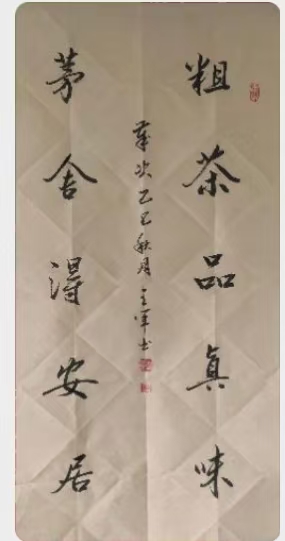 粗茶品真味
茅舍得安居
岁次乙巳秋月立军书